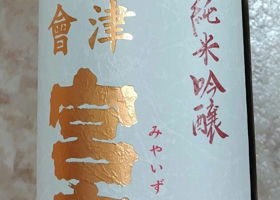 純米吟醸
會津
みやいず
宮